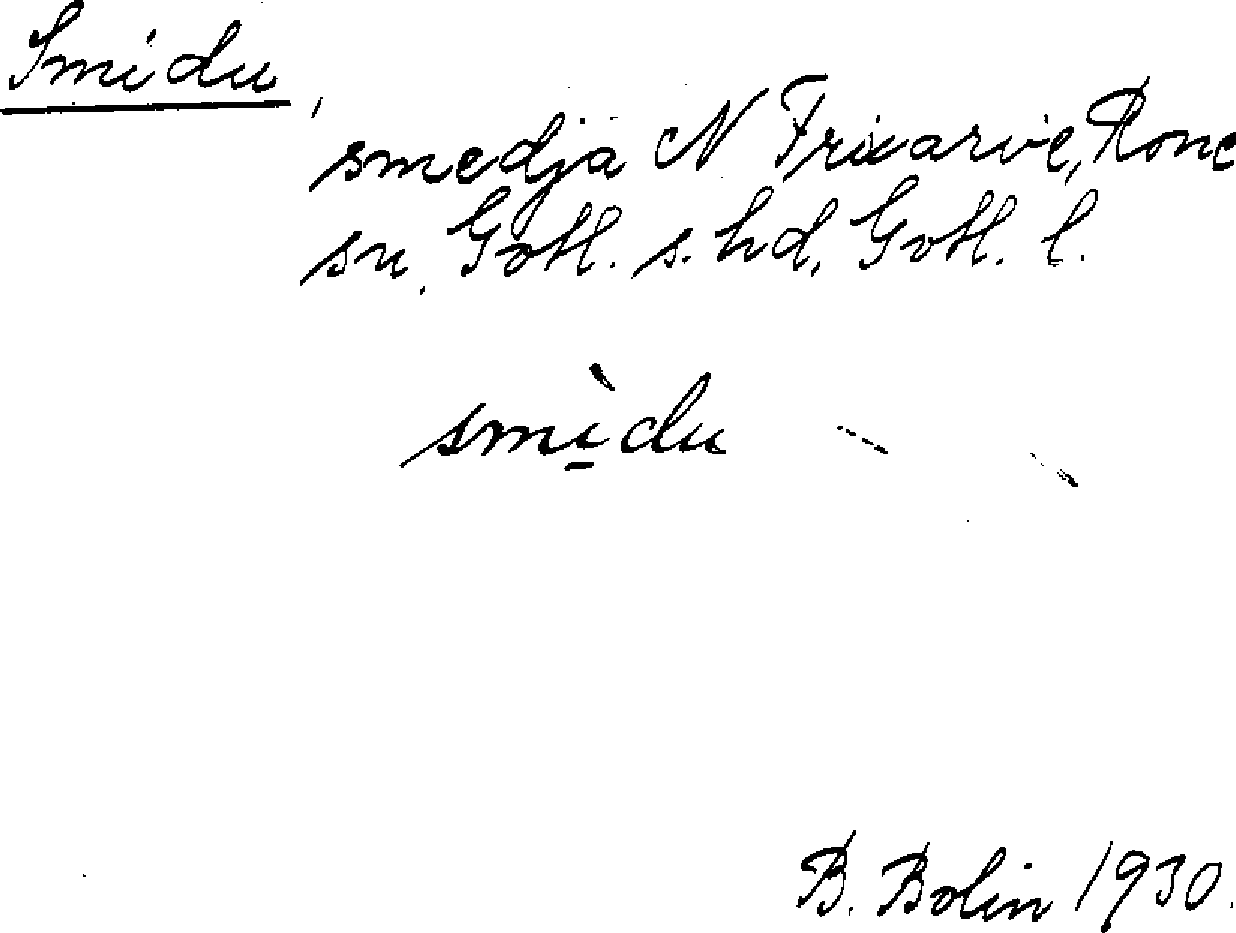 Smidu,
smedja N Frixarve, Rone
sn, Gotl. s. hd, Gotl. l.
smìdu
B. Bolin 1930.